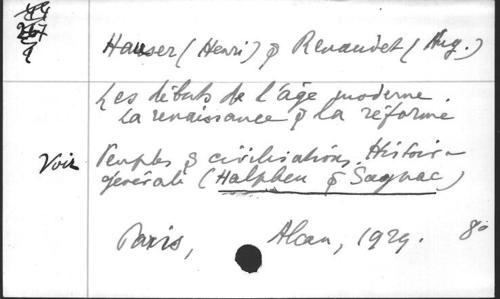 Hauser (Henri) & Renaudet (Aug.)
Les débuts de l'âge moderne.
La renaissance & la réforme
Voir Peuples & civilisations. Histoire
générale (Halphen & Sagnac)
Paris, Alcan, 1929. 8º